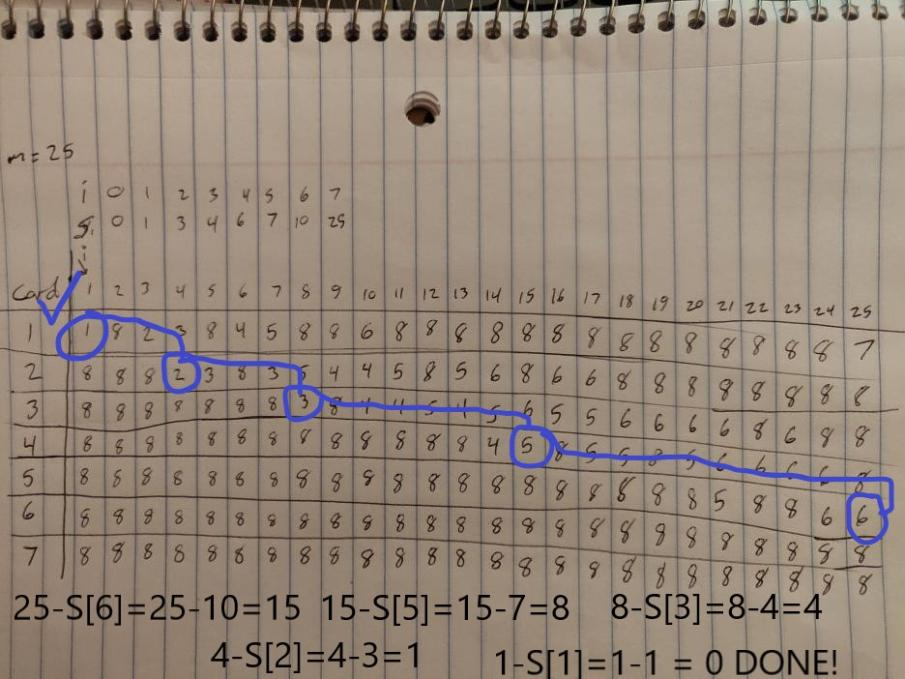 m = 25
i 0 1 2 3 4 5 6 7
S. 0 1 3 4 6 7 10 25
i
Card 1 2 3 4 5 6 7 8 9 10 11 12 13 14 15 16 17 18 19 20 21 22 23 24 25
1 1 8 2 3 8 4 5 8 8 6 8 8 8 8 8 8 8 8 8 8 8 8 8 8 7
2 8 8 8 2 3 8 3 5 4 4 5 8 5 6 8 6 6 8 8 8 8 8 8 8 8
3 8 8 8 8 8 8 8 3 8 4 4 5 4 5 6 5 5 6 6 6 6 8 6 8 8
4 8 8 8 8 8 8 8 8 8 8 8 8 8 4 5 8 5 5 8 5 6 6 6 6 8
5 8 8 8 8 8 8 8 8 8 8 8 8 8 8 8 8 8 8 8 8 5 8 8 6 6
6 8 8 8 8 8 8 8 8 8 8 8 8 8 8 8 8 8 8 8 8 8 8 8 8 8
7 8 8 8 8 8 8 8 8 8 8 8 8 8 8 8 8 8 8 8 8 8 8 8 8 8
25-S[6]=25-10=15 15-S[5]=15-7=8 8-S[3]=8-4=4
4-S[2]=4-3=1 1-S[1]=1-1 = 0 DONE!